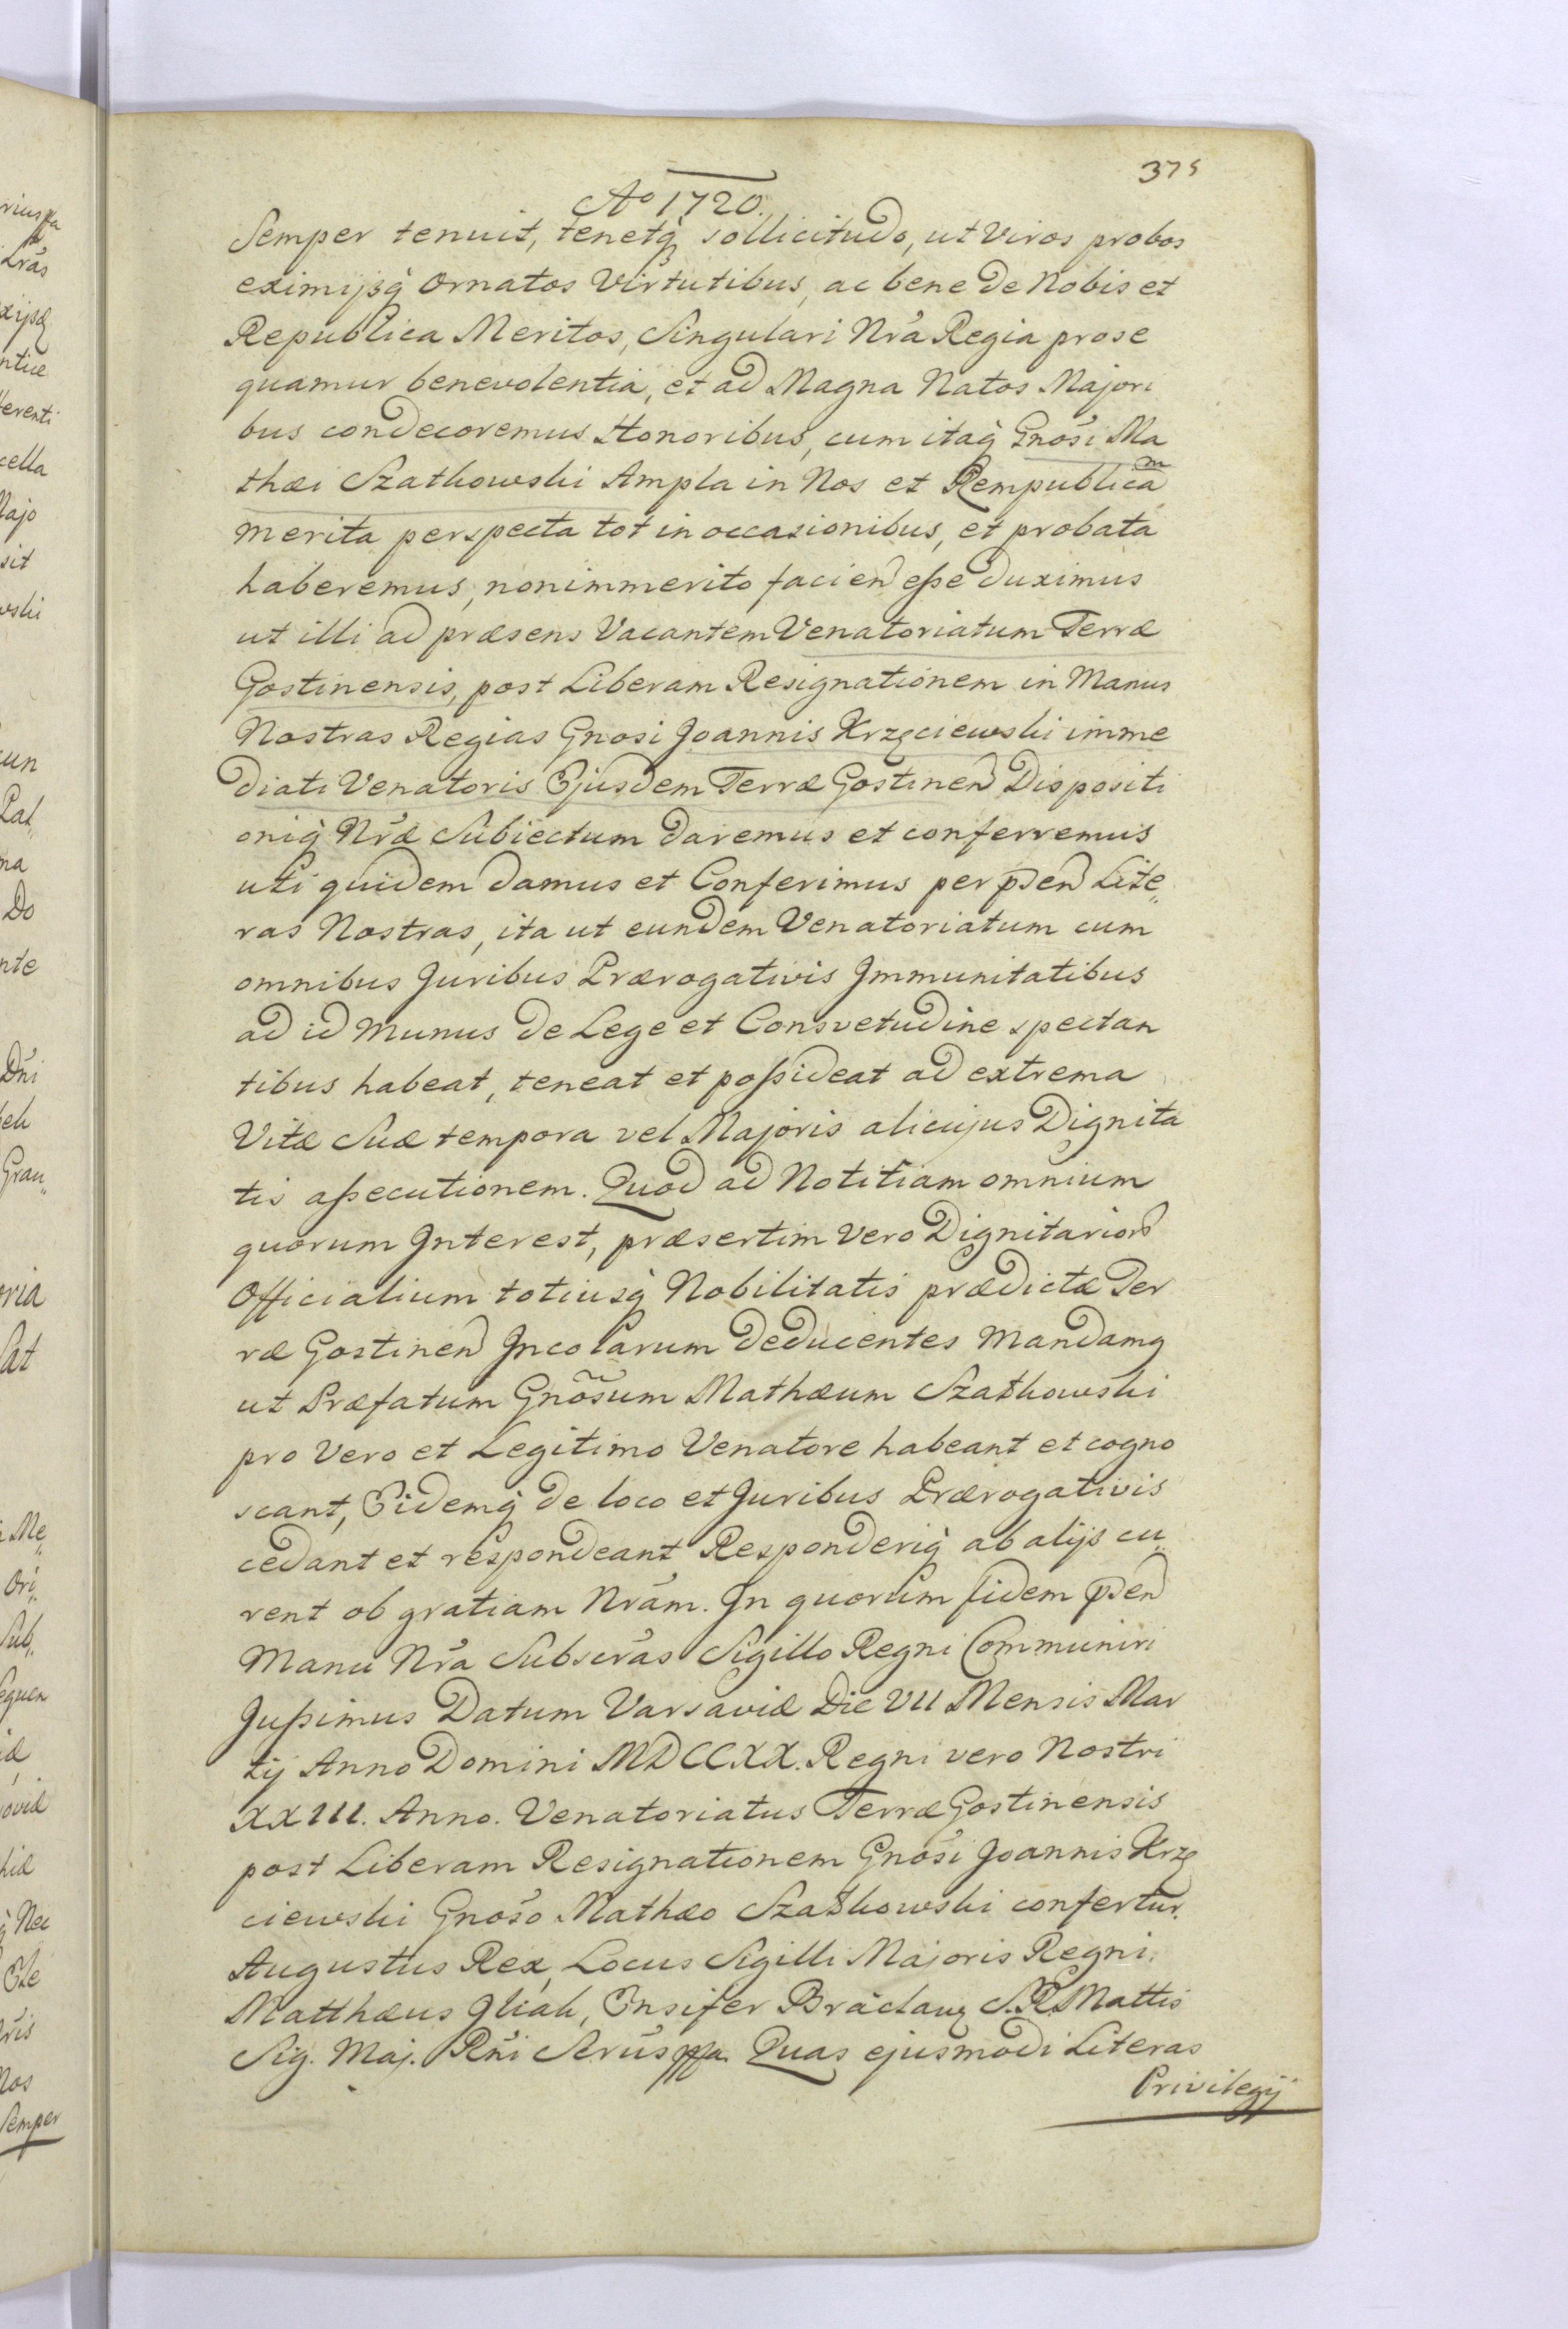 375
Ao 1720.
Semper tenuit, tenetq̀ sollicitudo, ut Viros probos
eximijsq̀ Ornatos Virtutibus, ac bene de Nobis et
Republica Meritos, Singulari Nr̃a Regia prose
quamur benevolentia, et ad Magna Natos Majori
bus condecoremus Honoribus, cum itaq̀ Gnosi Ma
thæi Szatkowski Ampla in Nos et Rempublicam
merita perspecta tot in occasionibus, et probata
haberemus, nonimmerito facien eße duximus
ut illi ad præsens Vacantem Venatoriatum Terræ
Gostinensis, post Liberam Resignationem in Manus
Nostras Regias Gnosi Joannis Krzęciewski imme
diati Venatoris Ejusdem Terræ Gostinen Dispositi
oniq̀ Nr̃æ Subiectum daremus et conferremus
uti quidem damus et Conferimus per pñ Lite„
ras Nostras, ita ut eundem Venatoriatum cum
omnibus Juribus Prærogativis Jmmunitatibus
ad id Munus de Lege et Consvetudine spectan
tibus habeat, teneat et poßideat ad extrema
Vitæ Suæ tempora vel Majoris alicujus Dignita
tis aßecutionem. Quod ad Notitiam omnium
quorum Jnterest, præsertim vero Dignitarior̃
Officialium totiusq̀ Nobilitatis prædictæ Ter
ræ Gostinen Jncolarum deducentes mandamq
ut Præfatum Gnõsum Mathæum Szatkowski
pro Vero et Legitimo Venatore habeant et cogno
scant, Eidemq̀ de loco et Juribus Prærogativis
cedant et respondeant Responderiq̀ ab alijs cu„
rent ob gratiam Nr̃am. Jn quorum fidem pñ
Manu Nr̃a Subscr̃as Sigillo Regni Communiri
Jußimus Datum Varsaviæ Die VII Mensis Mar
tij Anno Domini MDCCXX. Regni vero Nostri
XXIII. Anno. Venatoriatus Terræ Gostinensis
post Liberam Resignationem Gnosi Joannis Krzę
ciewski Gnoso Mathæo Szatkowski confertur.
Augustus Rex, Locus Sigilli Majoris Regni.
Matthæus Jliah, Ensifer Braclaw S. R. Mattis
Sig. Maj. Rñi Sr̃us ppa. Quas ejusmodi Literas
Privilegij